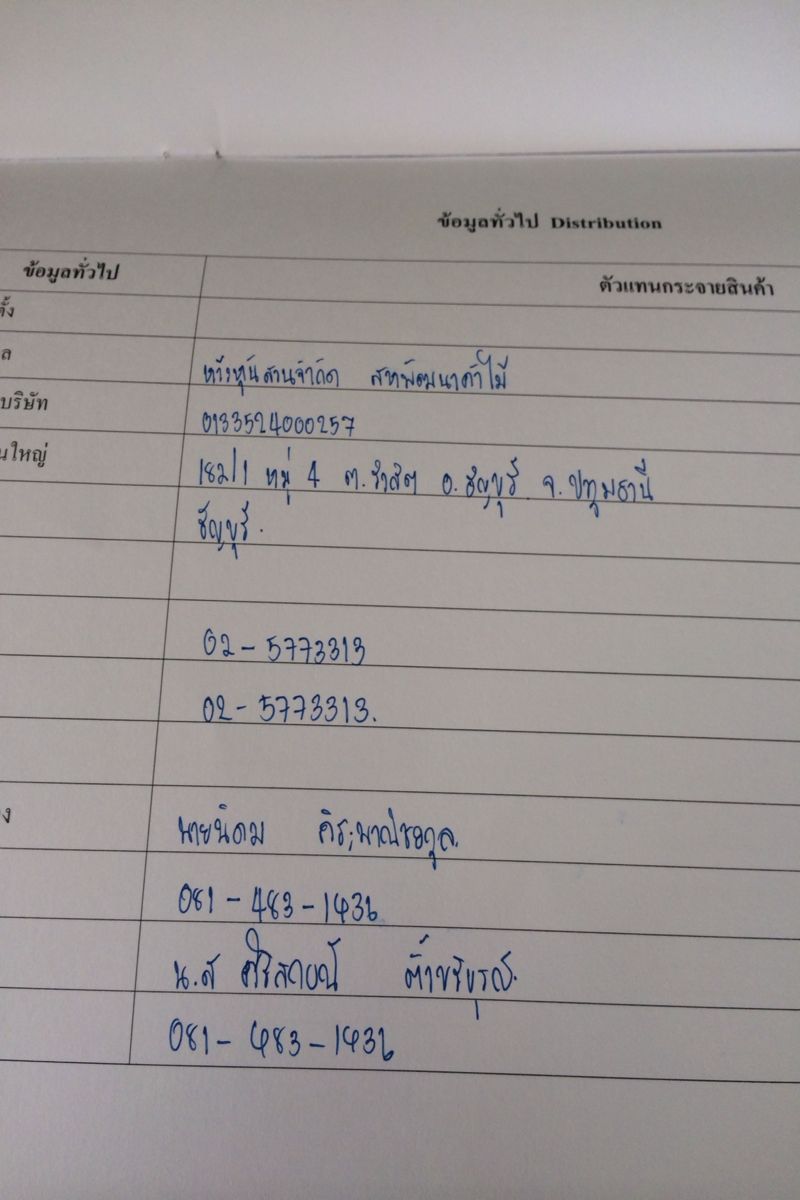 ข้อมูลทั่วไป Distribution
ข้อมูลทั่วไป
ตัวแทนกระจายสินค้า
ตั้ง
ล
ห้างหุ้นส่วนจำกัด สหพัฒนาค้าไม้
บริษัท
0133524000257
นใหญ่
182/1 หมู่ 4 ต.รังสิต อ.ธัญบุรี จ.ปทุมธานี
ธัญบุรี.
02-5773313
02-5773313.
ง
นายนิคม
081-483-1436
น.ส
081-483-1436